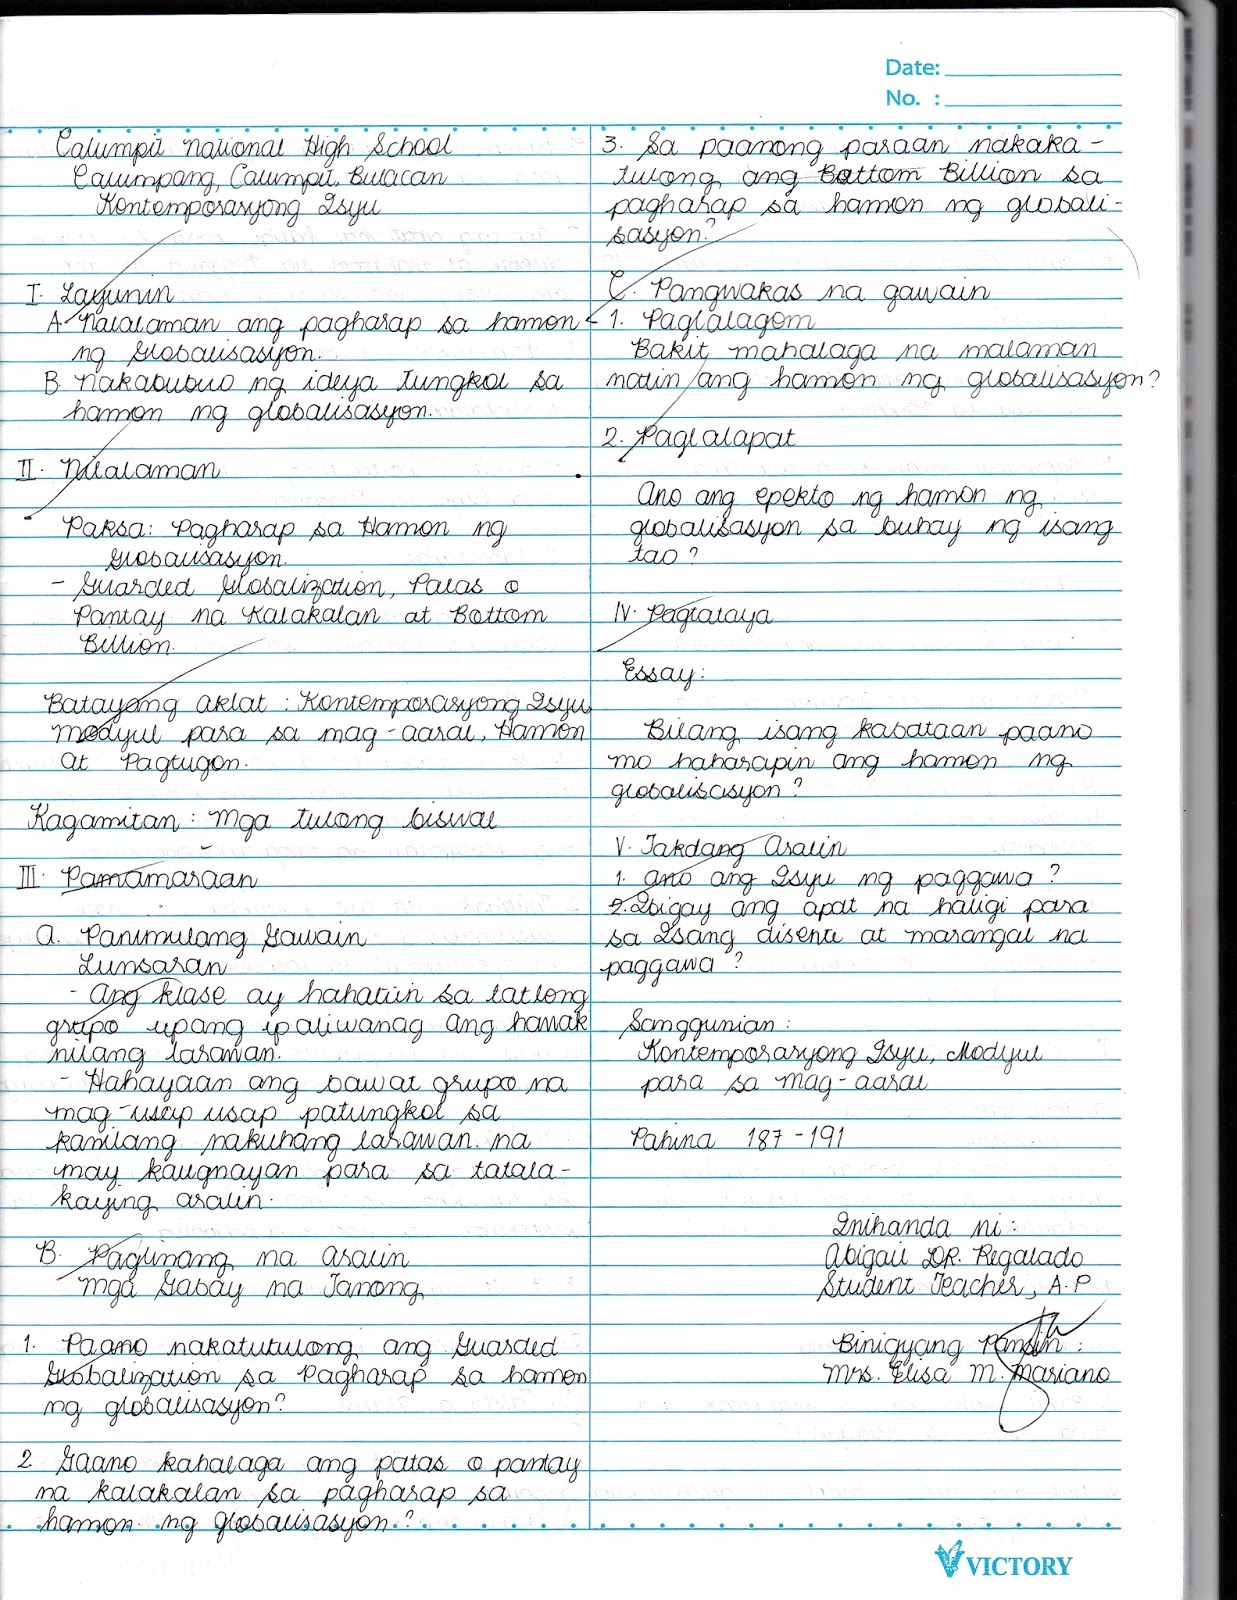 Date:
No. :
Calumpit National High School
Calumpang, Calumpit, Bulacan
Kontemporaryong Isyu
I. Layunin
A. Nalalaman ang pagharap sa hamon
ng Globalisasyon.
B. Nakabubuo ng ideya tungkol sa
hamon ng globalisasyon.
II. Nilalaman
Paksa: Pagharap sa Hamon ng
Globalisasyon.
- Guarded Globalization, Patas o
Pantay na Kalakalan at Bottom
Billion.
Batayang Aklat : Kontemporaryong Isyu,
modyul para sa mag-aaral, Hamon
at Pagtugon.
Kagamitan : Mga tulong biswal
III. Pamamaraan
A. Panimulang Gawain
Lunsaran
- Ang klase ay hahatiin sa tatlong
grupo upang ipaliwanag ang hawak
nilang larawan.
- Hahayaan ang bawat grupo na
mag-usap usap patungkol sa
kanilang nakuhang larawan. na
may kaugnayan para sa tatala-
kaying aralin.
B. Paglinang na Aralin
Mga Gabay na Tanong
1. Paano nakatutulong ang Guarded
Globalization sa Pagharap sa hamon
ng globalisasyon?
2 Gaano kahalaga ang patas o pantay
na kalakalan sa pagharap sa
hamon ng globalisasyon?
3. Sa paanong paraan nakaka-
tulong ang Bottom Billion sa
pagharap sa hamon ng globali-
sasyon?
C. Pangwakas na gawain
1. Paglalagom
Bakit mahalaga na malaman
natin ang hamon ng globalisasyon?
2. Paglalapat
Ano ang epekto ng hamon ng
globalisasyon sa buhay ng isang
tao?
IV. Pagtataya
Essay:
Bilang isang kabataan paano
mo haharapin ang hamon ng
globalisasyon?
V. Takdang Aralin
1. Ano ang Isyu ng paggawa?
2. Ibigay ang apat na haligi para
sa Isang disente at marangal na
paggawa?
Sanggunian:
Kontemporaryong Isyu, Modyul
para sa mag-aaral
Pahina 187-191
Inihanda ni:
Abigail DR. Regalado
Student Teacher, A.P
Binigyang Pansin:
Mrs. Elisa M. Mariano
VICTORY